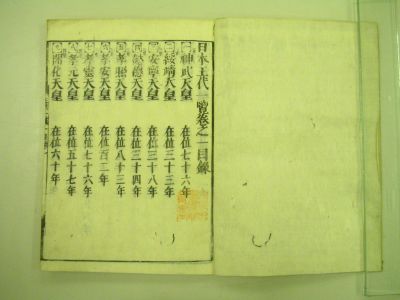 日本王代一覽卷之一目錄
一 神武天皇 在位七十六年
二 綏靖天皇 在位三十三年
三 安寧天皇 在位三十八年
四 懿德天皇 在位三十四年
五 孝昭天皇 在位八十三年
六 孝安天皇 在位百二年
七 孝靈天皇 在位七十六年
八 孝元天皇 在位五十七年
九 開化天皇 在位六十年